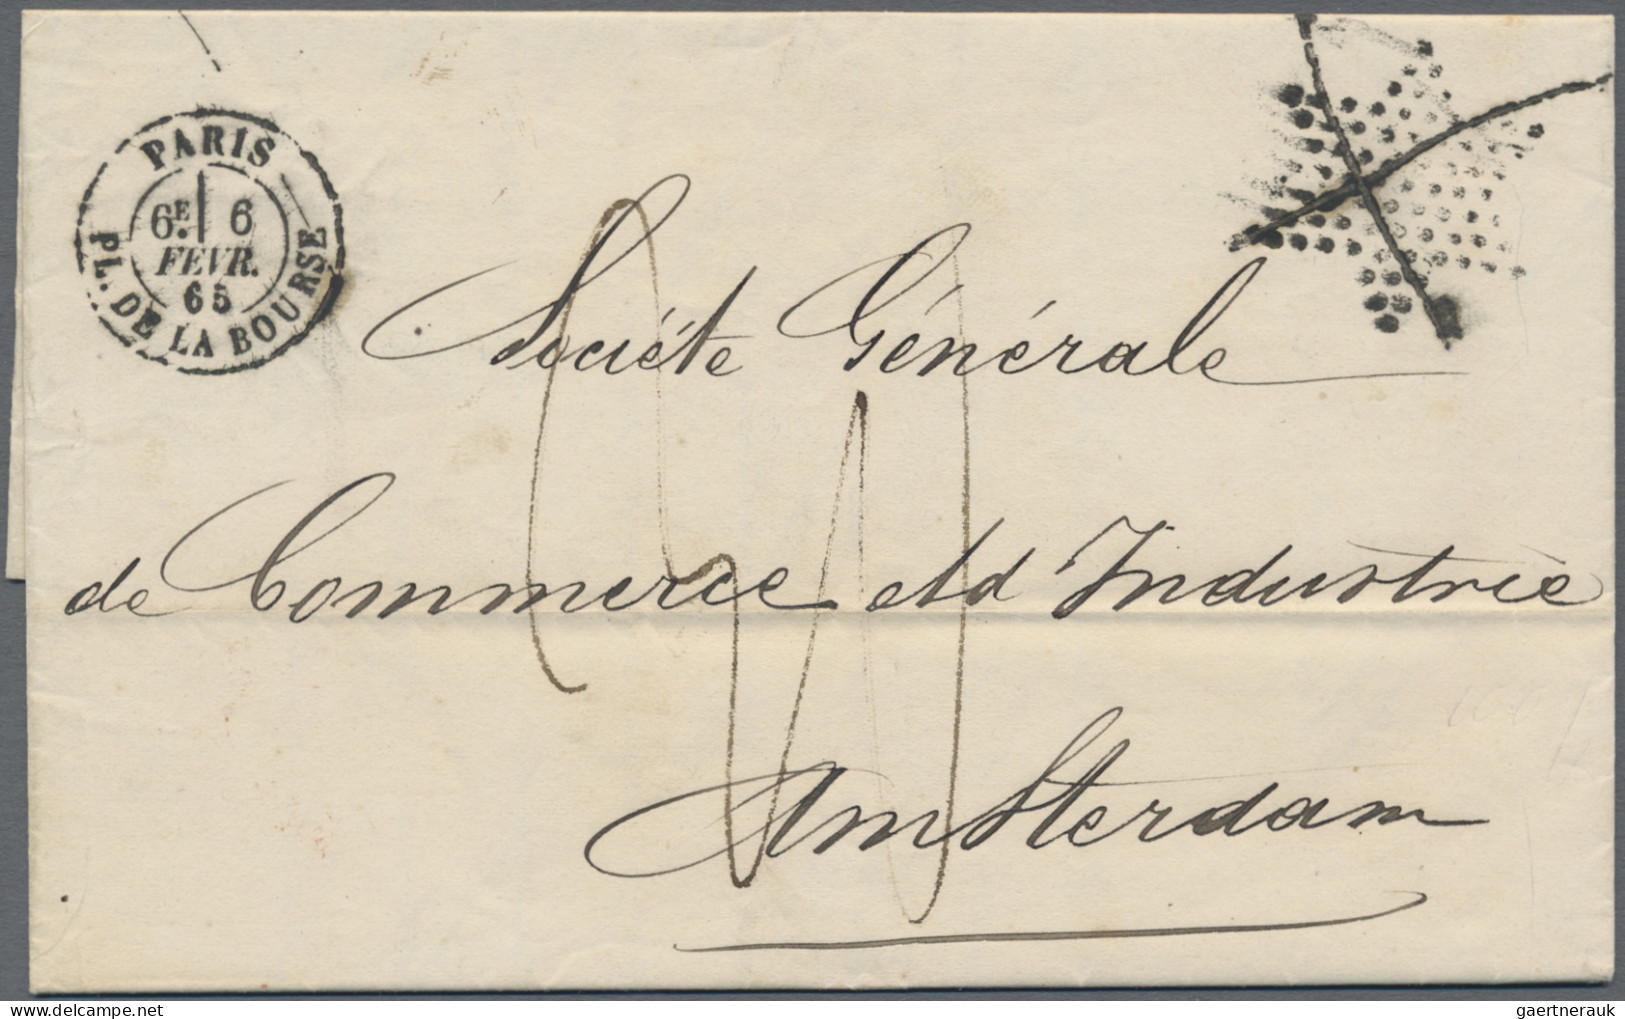 PARIS
6E. 6
FEVR.
65
PL. DE LA BOURSE
Société Générale
de Commerce et d Industrie
Amsterdam
gaertnerauk